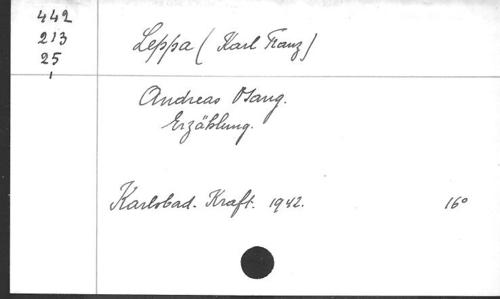 442
213
25
Leppa (Karl Franz)
Andreas Osang.
Erzählung.
Karlsbad. Kraft. 1942. 16°